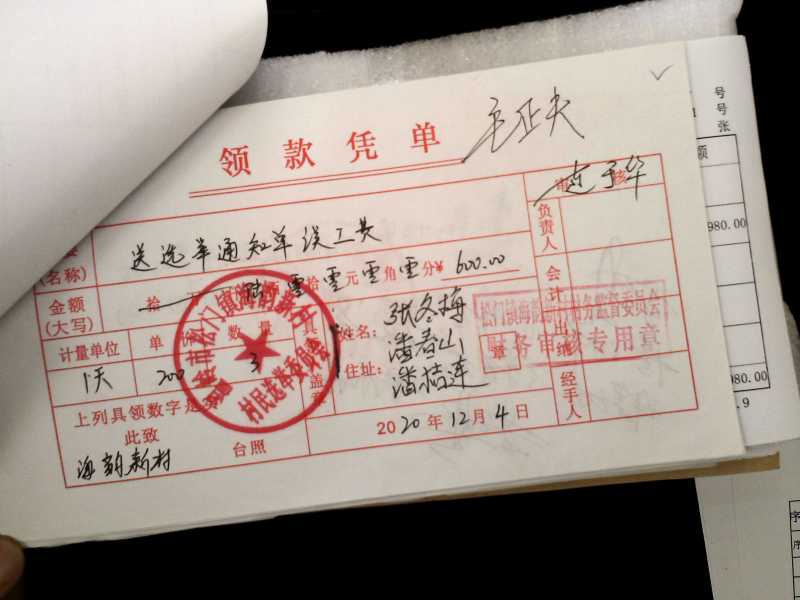 领款凭单
(名称)
送选举通知单误工共
审核
负责人
金额
(大写)
拾
陆
零
拾
零
元
零
角
零
分¥
600.00
计量单位
单
数量
1天
200
3
姓名:
张冬梅
潘春山
住址:
潘桔连
盖章
会计
出纳
经手人
村民选举委员会
财务审核专用章
上列具领数字是
此致
台照
2020年12月4日
号
号
张
额
980.00
980.00
.9
序
序